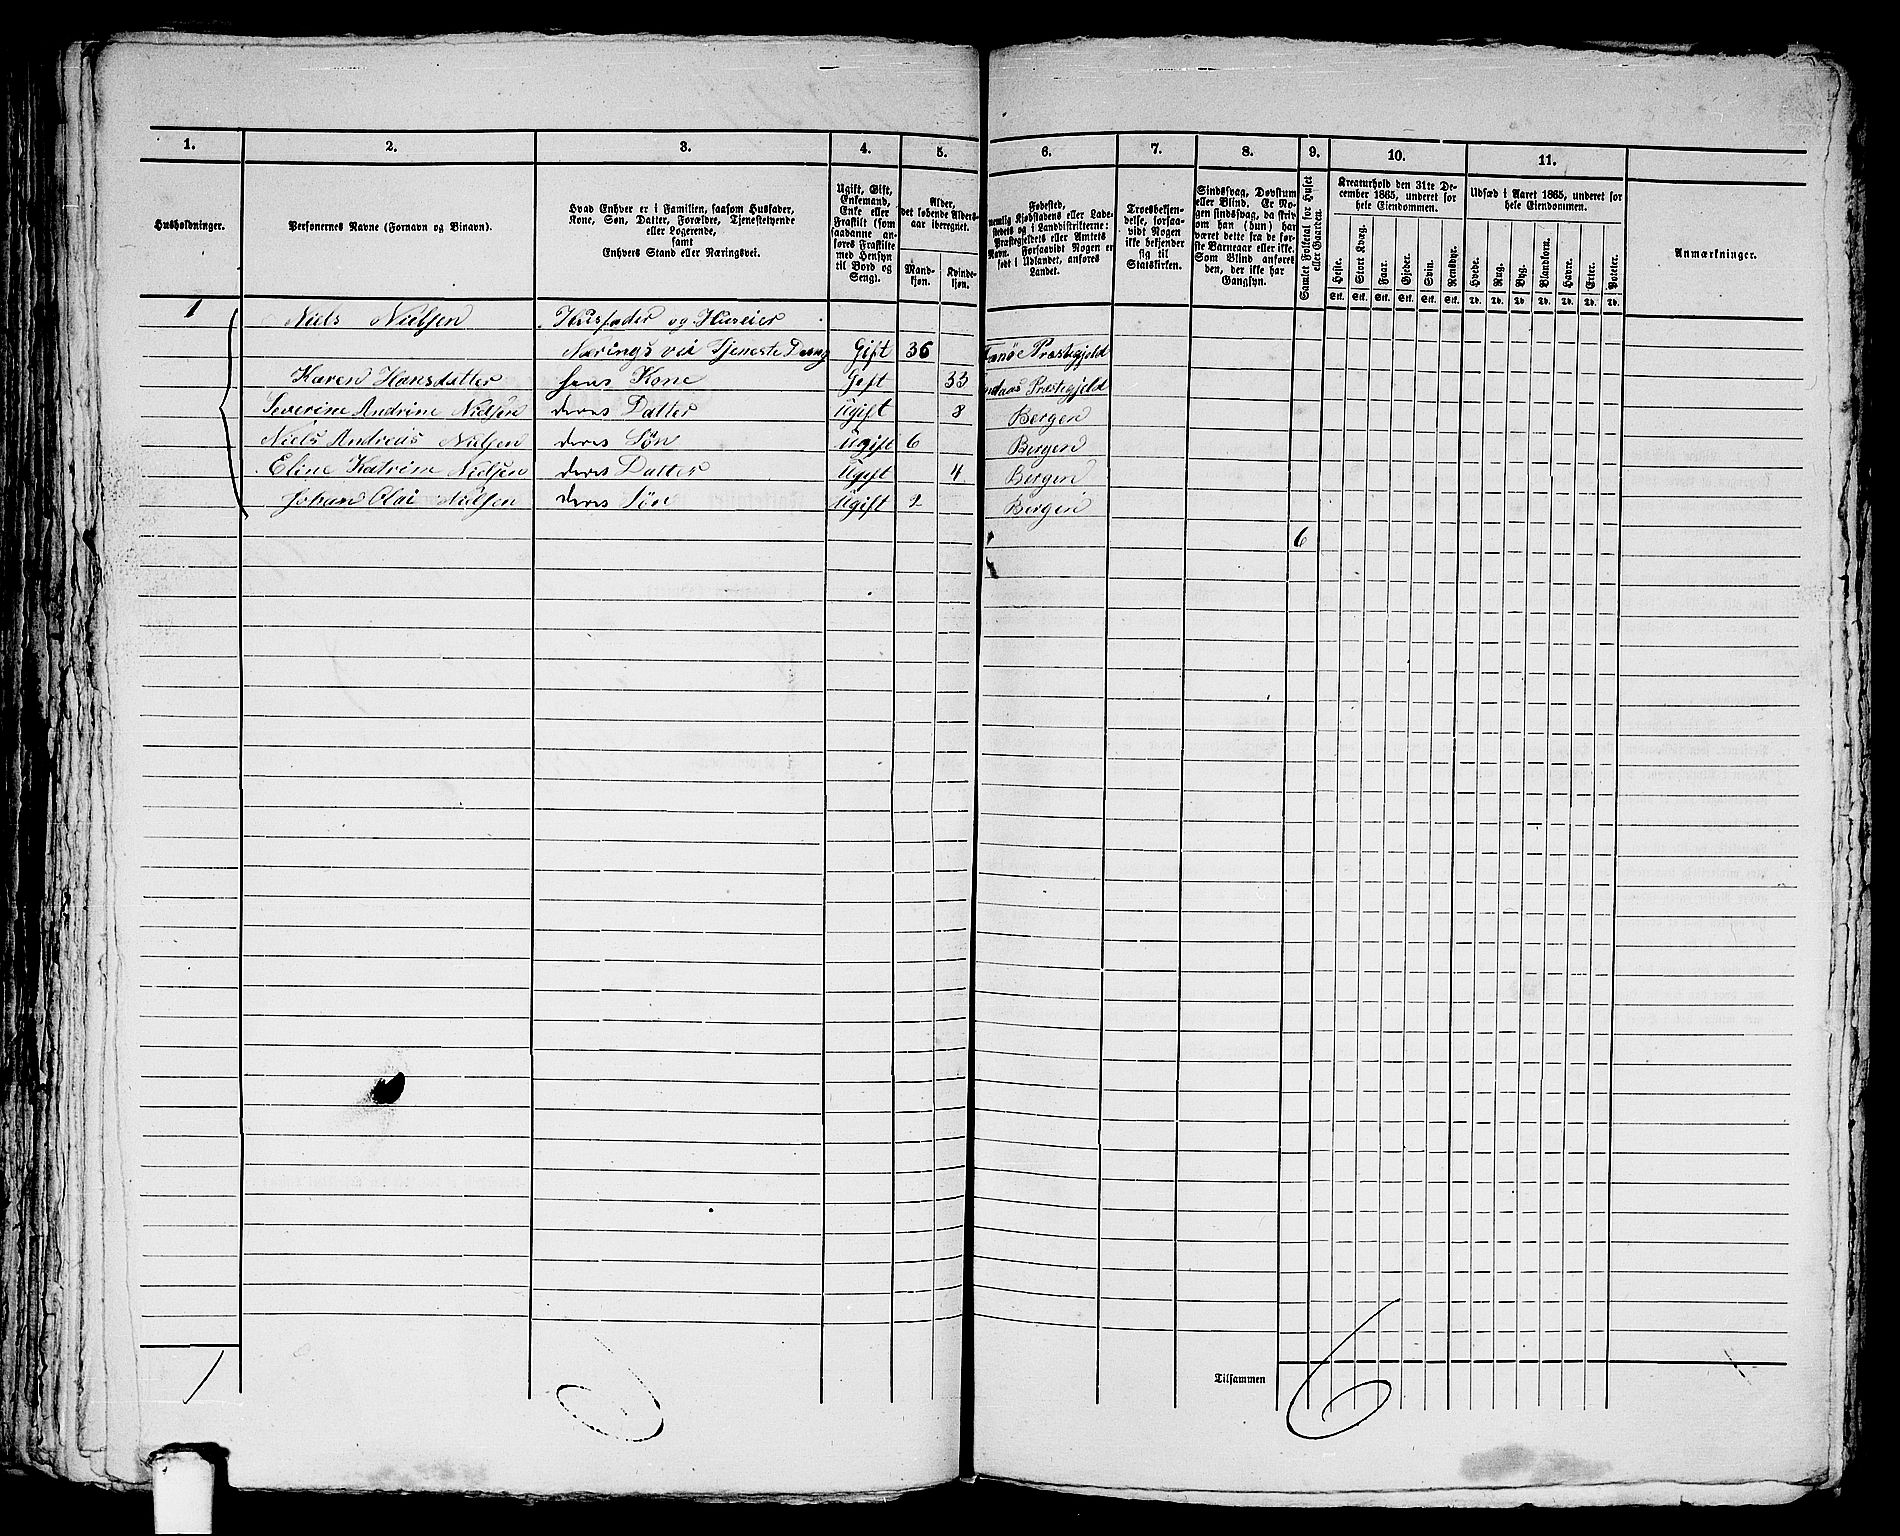 1. 2. 3. 4. 5. 6. 7. 8. 9. 10. 11.
Husholdninger.
Personernes Navne (Fornavn og Binavn).
Hvad Enhver er i Familien, saasom Husfader,
Kone, Søn, Datter, Forældre, Tjenestetyende
eller Logerende,
samt
Enhvers Stand eller Næringsvei.
Ugift, Gift,
Enkemand,
Enke eller
Fraskilt (som
saadanne an-
føres Fraskilte
med Hensyn
til Bord og
Seng).
Alder,
det løbende Alders-
aar iberegnet.
Mand-
kjøn.
Kvinde-
kjøn.
Fødested,
nemlig Kjøbstadens eller Lade-
stedets og i Landdistrikterne:
Præstegjeldets eller Amtets
Navn. Forsaavidt Nogen er
født i Udlandet, anføres
Landet.
Troesbekjen-
delse, forsaa-
vidt Nogen
ikke bekjender
sig til
Statskirken.
Sindssvag, Døvstum
eller Blind. Er No-
gen sindssvag, da skriv
om han (hun) har
været dette fra de før-
ste Barneaar eller ikke.
Som Blind anføres
den, der ikke har
Gangsyn.
Samlet Folketal for Huset
eller Gaarden.
Kreaturhold den 31te De-
cember 1865, underet for
hele Eiendommen.
Heste. Stort Kvæg. Faar. Gjeder. Svin. Rensdyr.
Stk. Stk. Stk. Stk. Stk. Stk.
Udsæd i Aaret 1865, underet for
hele Eiendommen.
Hvede. Rug. Byg. Blandkorn. Havre. Erter. Poteter.
Td. Td. Td. Td. Td. Td. Td.
Anmærkninger.
1 Niels Nielsen Husfader og Huseier
Nærings vei Tjeneste Dreng Gift 36 Præstegjeld
Karen Hansdatter hans Kone Gift 33 Præstegjeld
Severine Andrine Nielsen deres Datter Ugift 8 Bergen
Niels Andreas Nielsen deres Søn Ugift 6 Bergen
Eline Katrine Nielsen deres Datter Ugift 4 Bergen
Johan Olai Nielsen deres Søn Ugift 2 Bergen
6
1 Tilsammen 6